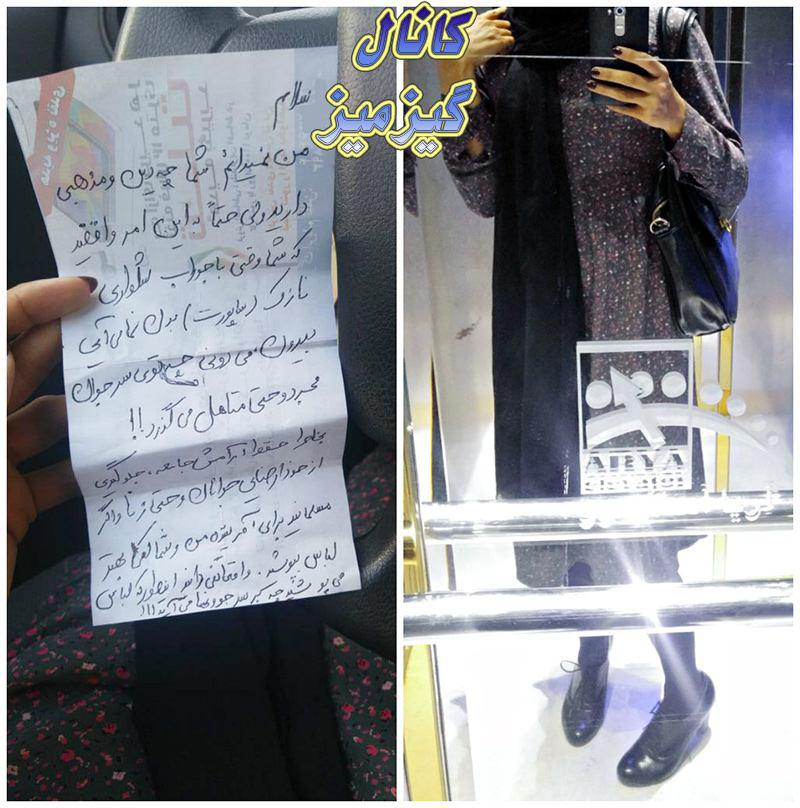 کانال
گیزمیز
سلام
من نمیدانم شما چه دین و مذهبی
دارید ولی حتماً به این امر واقفید
که شما وقتی با جوراب شلواری
نازک (ساپورت) بدن نما می آیی
بیرون، می دونی چی توی سر جوان
مجرد و حتی متاهل می گذرد!!
بخاطر حفظ آرامش جامعه، جلوگیری
از خودارضایی جوانان و حتی زنا و اگر
مسلمانید برای آفریننده من و شما لطفاً بهتر
لباس بپوشید. واقعا نمی دانید اینطوری که لباس
می پوشید چه به سر جوونها می آرید!!!
ATBYA